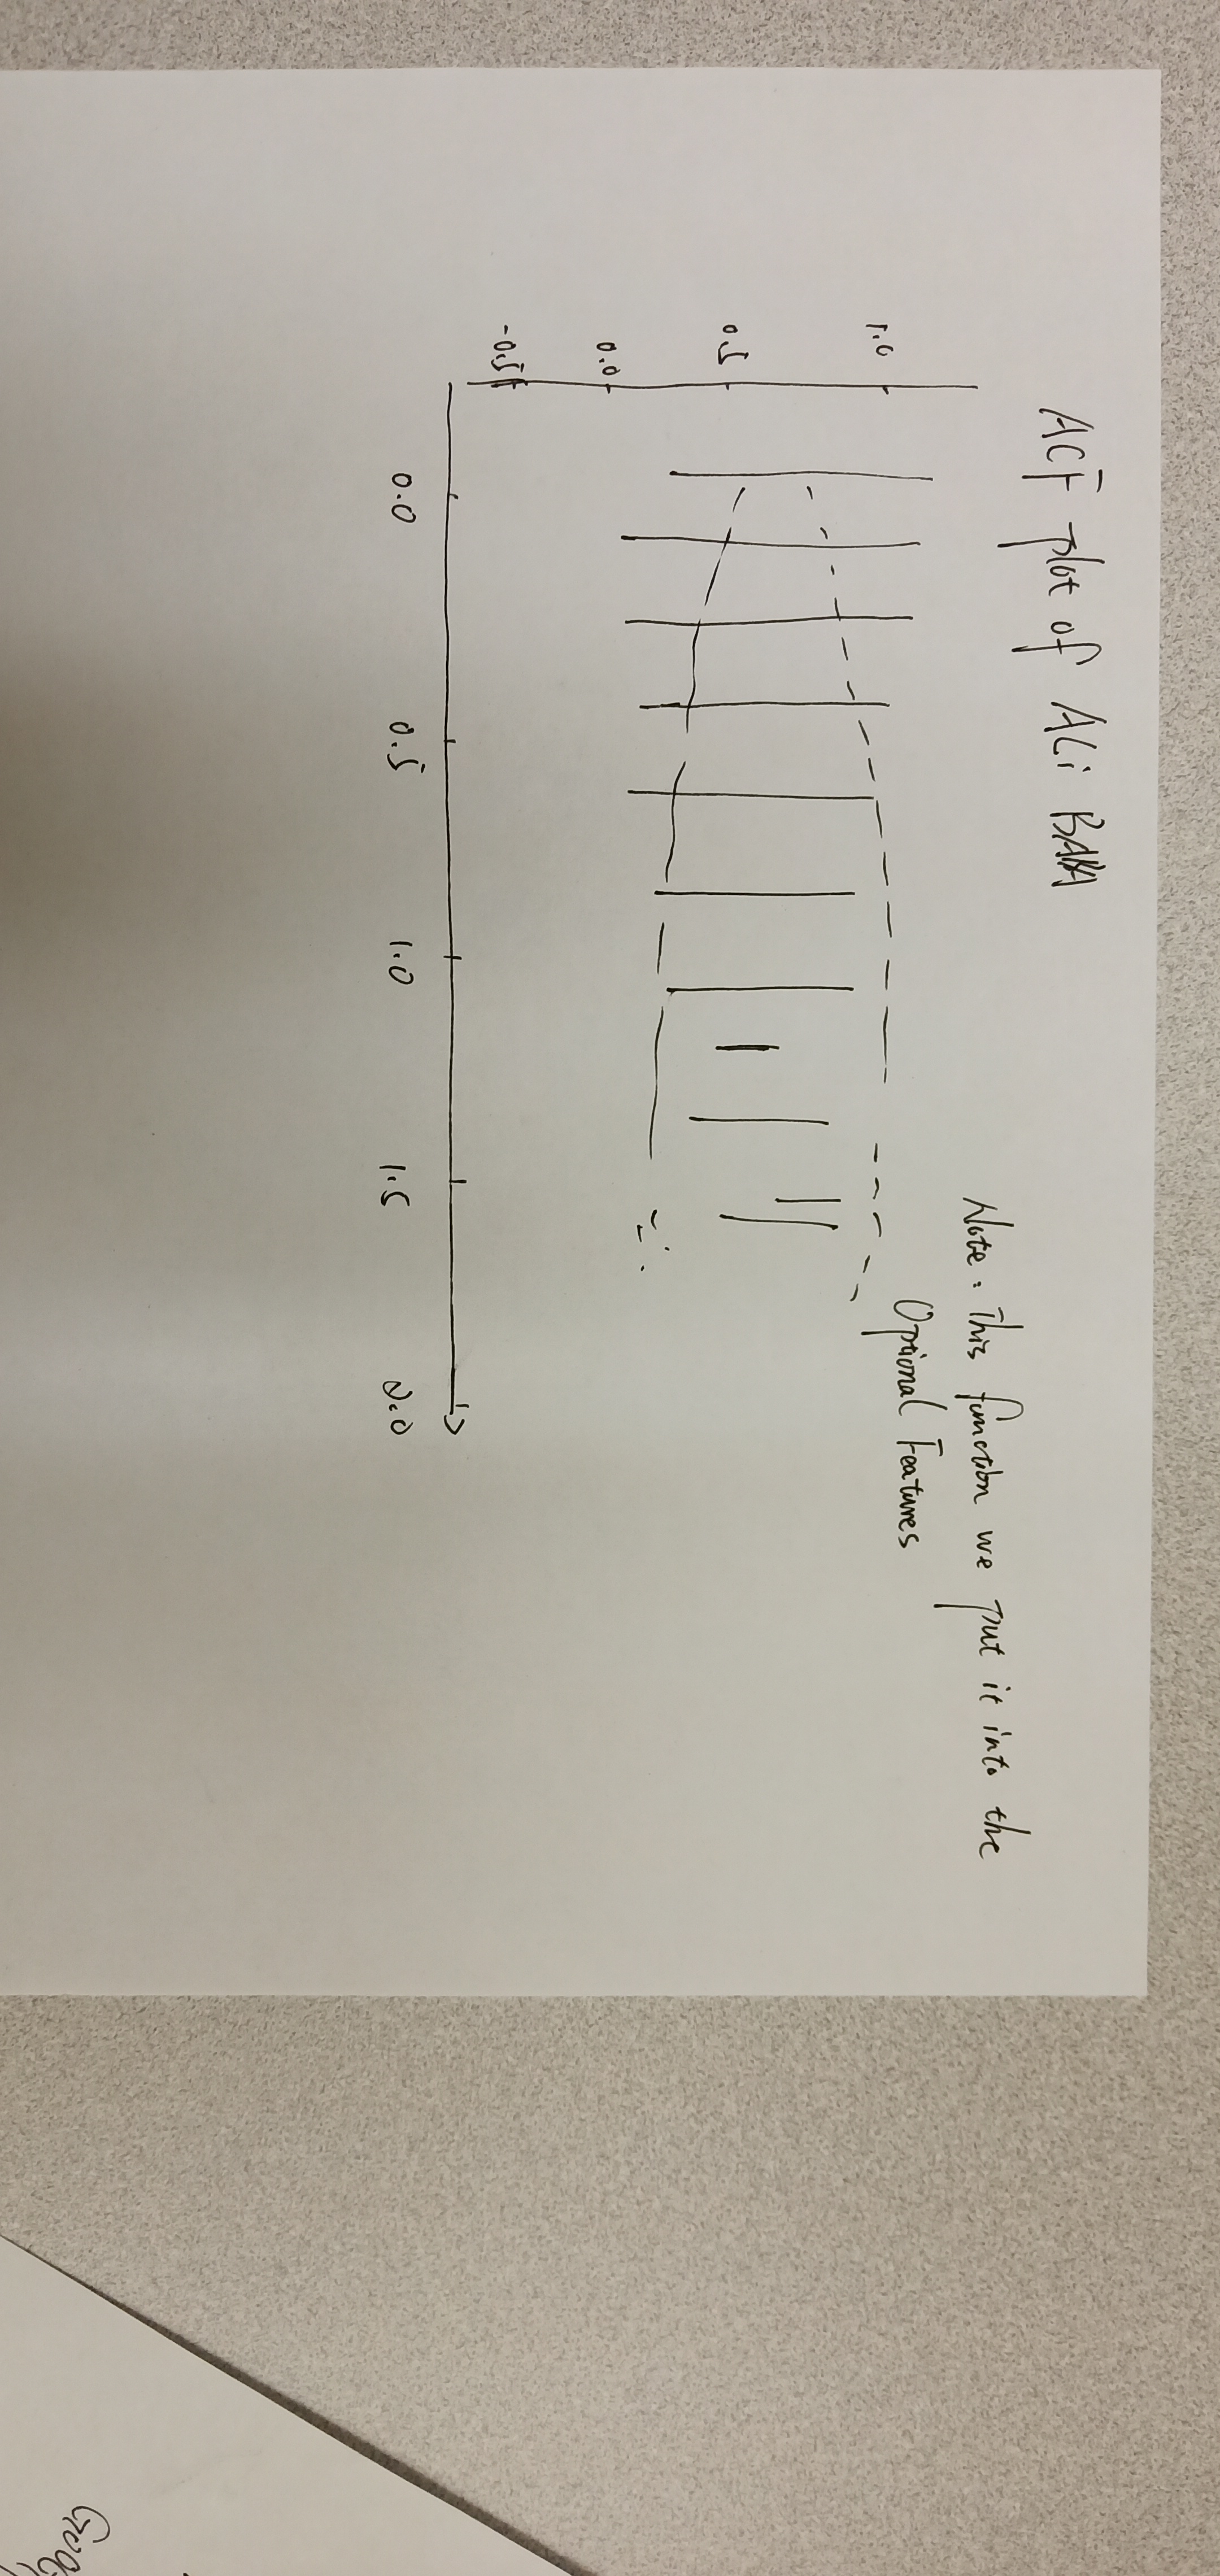 ACF plot of ALi BABA
Note: This function we put it into the
Optional Features
1.0
0.5
0.0
-0.5
0.0 0.5 1.0 1.5 2.0